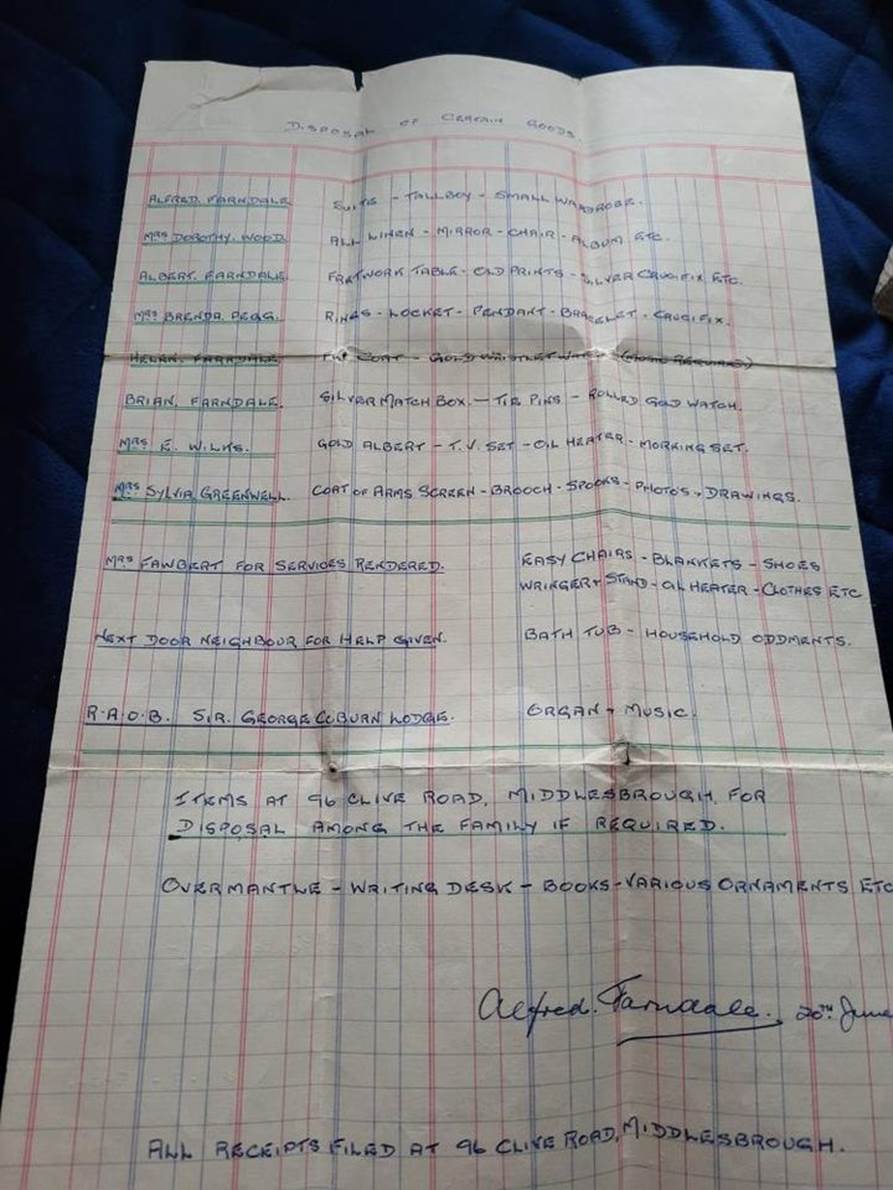 DISPOSAL OF CERTAIN GOODS.
ALFRED. FARNDALE SUITS - TALLBOY - SMALL WARDROBE.
MRS DOROTHY. WOOD. ALL LINEN - MIRROR - CHAIR - ALBUM ETC.
ALBERT. FARNDALE. FRETWORK TABLE - OLD PRINTS - SILVER CRUCIFIX ETC.
MRS BRENDA. PEGG. RINGS - LOCKET - PENDANT - BRACELET - CRUCIFIX.
HELEN. FARNDALE FUR COAT - GOLD WRISTLET WATCH
BRIAN. FARNDALE. SILVER MATCH BOX. - TIE PINS - ROLLED GOLD WATCH.
MRS E. WILKS. GOLD ALBERT - T.V. SET - OIL HEATER - MORNING SET.
MRS SYLVIA GREENWELL. COAT OF ARMS SCREEN - BROOCH - SPOOKS - PHOTO'S + DRAWINGS.
MRS FAWBERT FOR SERVICES RENDERED. EASY CHAIRS - BLANKETS - SHOES
WRINGER + STAND - OIL HEATER - CLOTHES ETC
NEXT DOOR NEIGHBOUR FOR HELP GIVEN. BATH TUB - HOUSEHOLD ODDMENTS.
R.A.O.B. SIR. GEORGE COBURN LODGE. ORGAN + MUSIC.
ITEMS AT 96 CLIVE ROAD, MIDDLESBROUGH, FOR
DISPOSAL AMONG THE FAMILY IF REQUIRED.
OVERMANTLE - WRITING DESK - BOOKS - VARIOUS ORNAMENTS ETC
Alfred. Farndale. 20TH June
ALL RECEIPTS FILED AT 96 CLIVE ROAD, MIDDLESBROUGH.